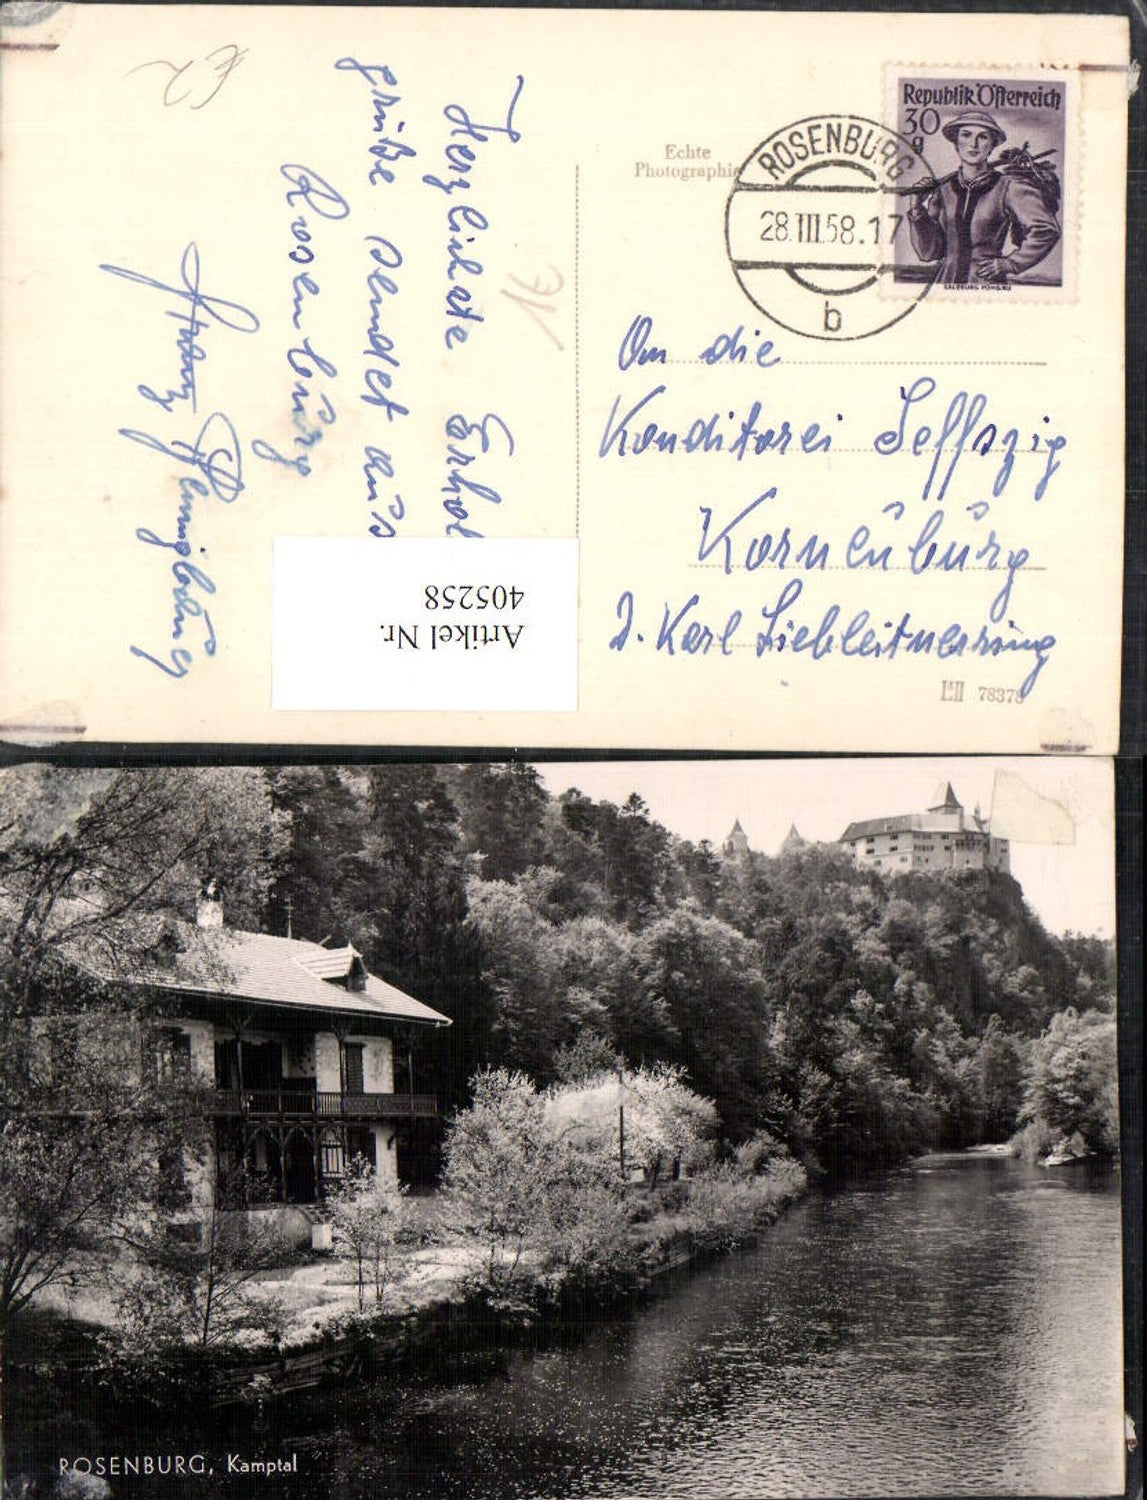 €2
Herzlichste Erhol
grüße sendet aus
Rosenburg
Echte
Photographie
ROSENBURG
28.III.58.17
b
Republik Österreich
30
g
SALZBURG PONGAU
An die
Konditorei Seffszig
Korneuburg
D. Karl Liebleitnerring
L:II 78378
Artikel Nr.
405258
ROSENBURG, Kamptal